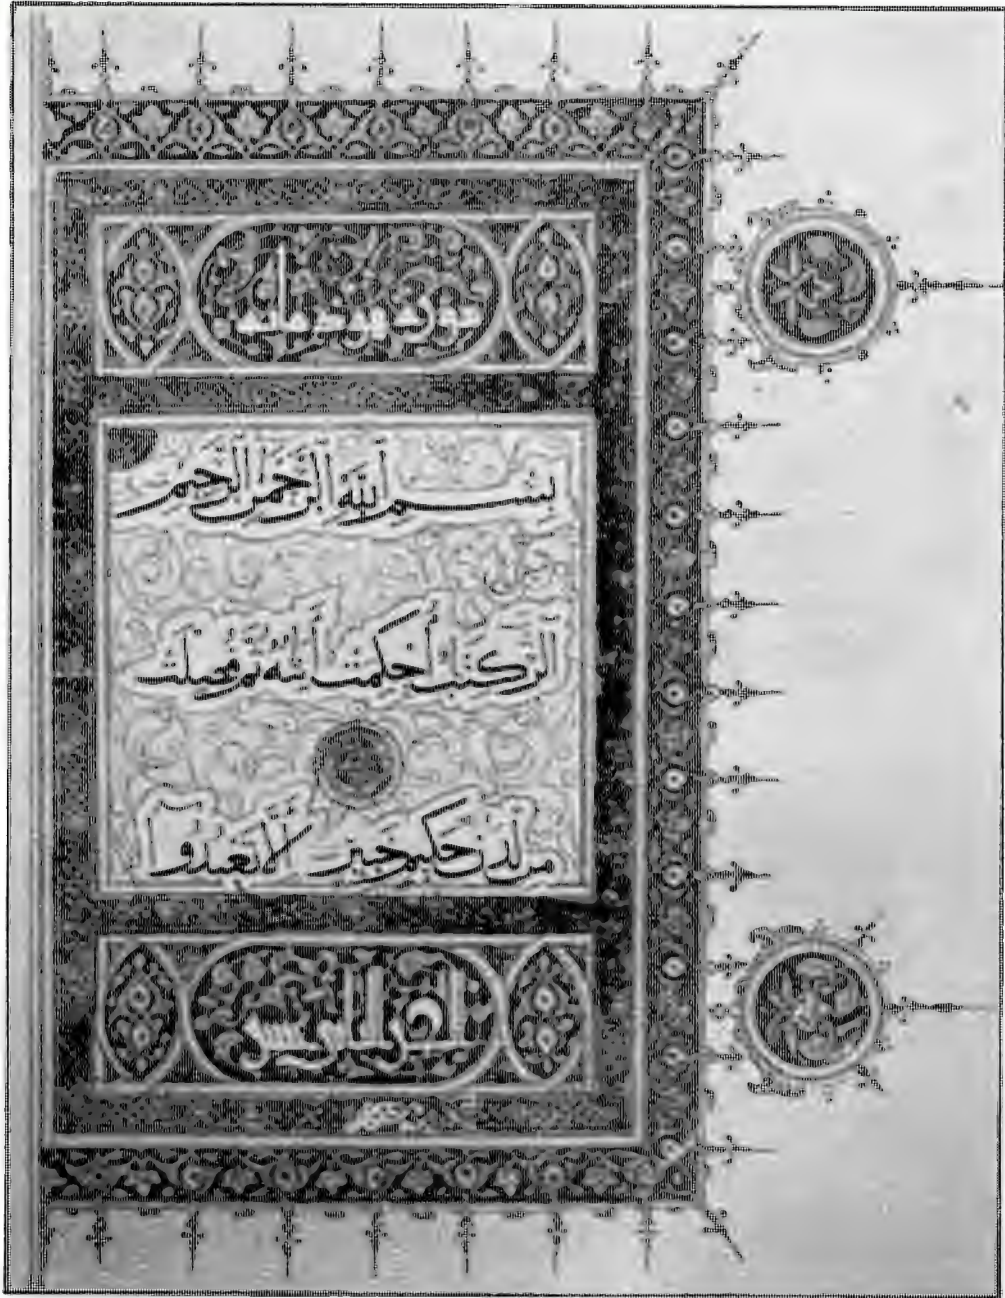 سورة هود مائة
بِسْمِ اللَّهِ الرَّحْمَنِ الرَّحِيمِ
الر كِتَبٌ أُحْكِمَتْ آيَتُهُ ثُمَّ فُصِّلَتْ
مِن لَّدُنْ حَكِيمٍ خَبِيرٍ أَلَّا تَعْبُدُوا